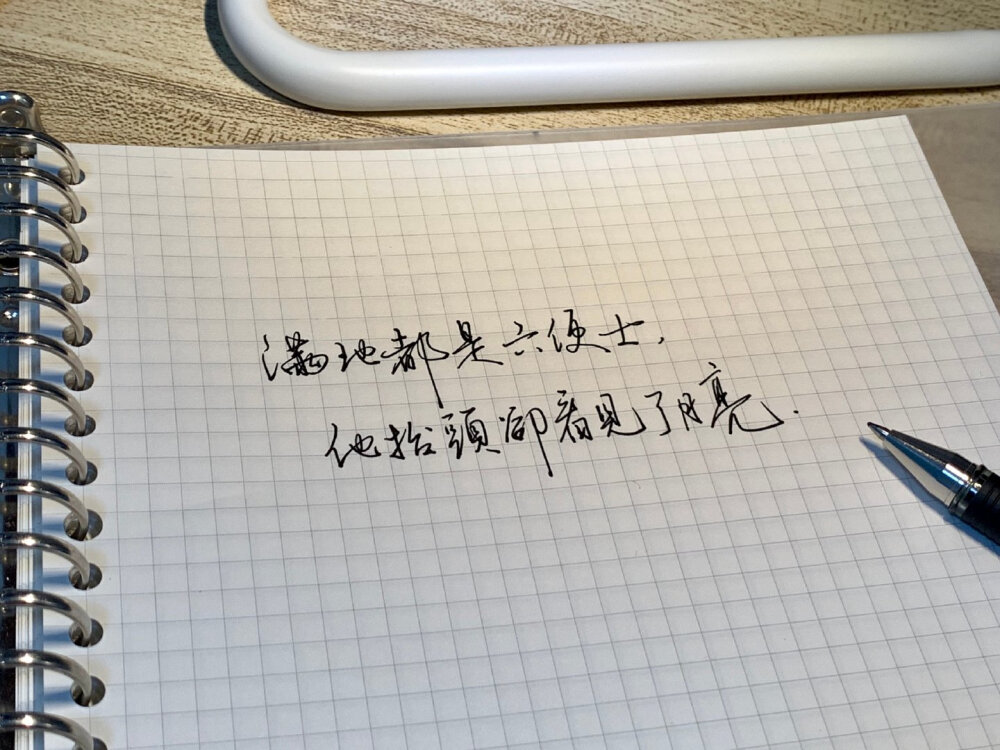 满地都是六便士，
他抬頭卻看見了月亮.